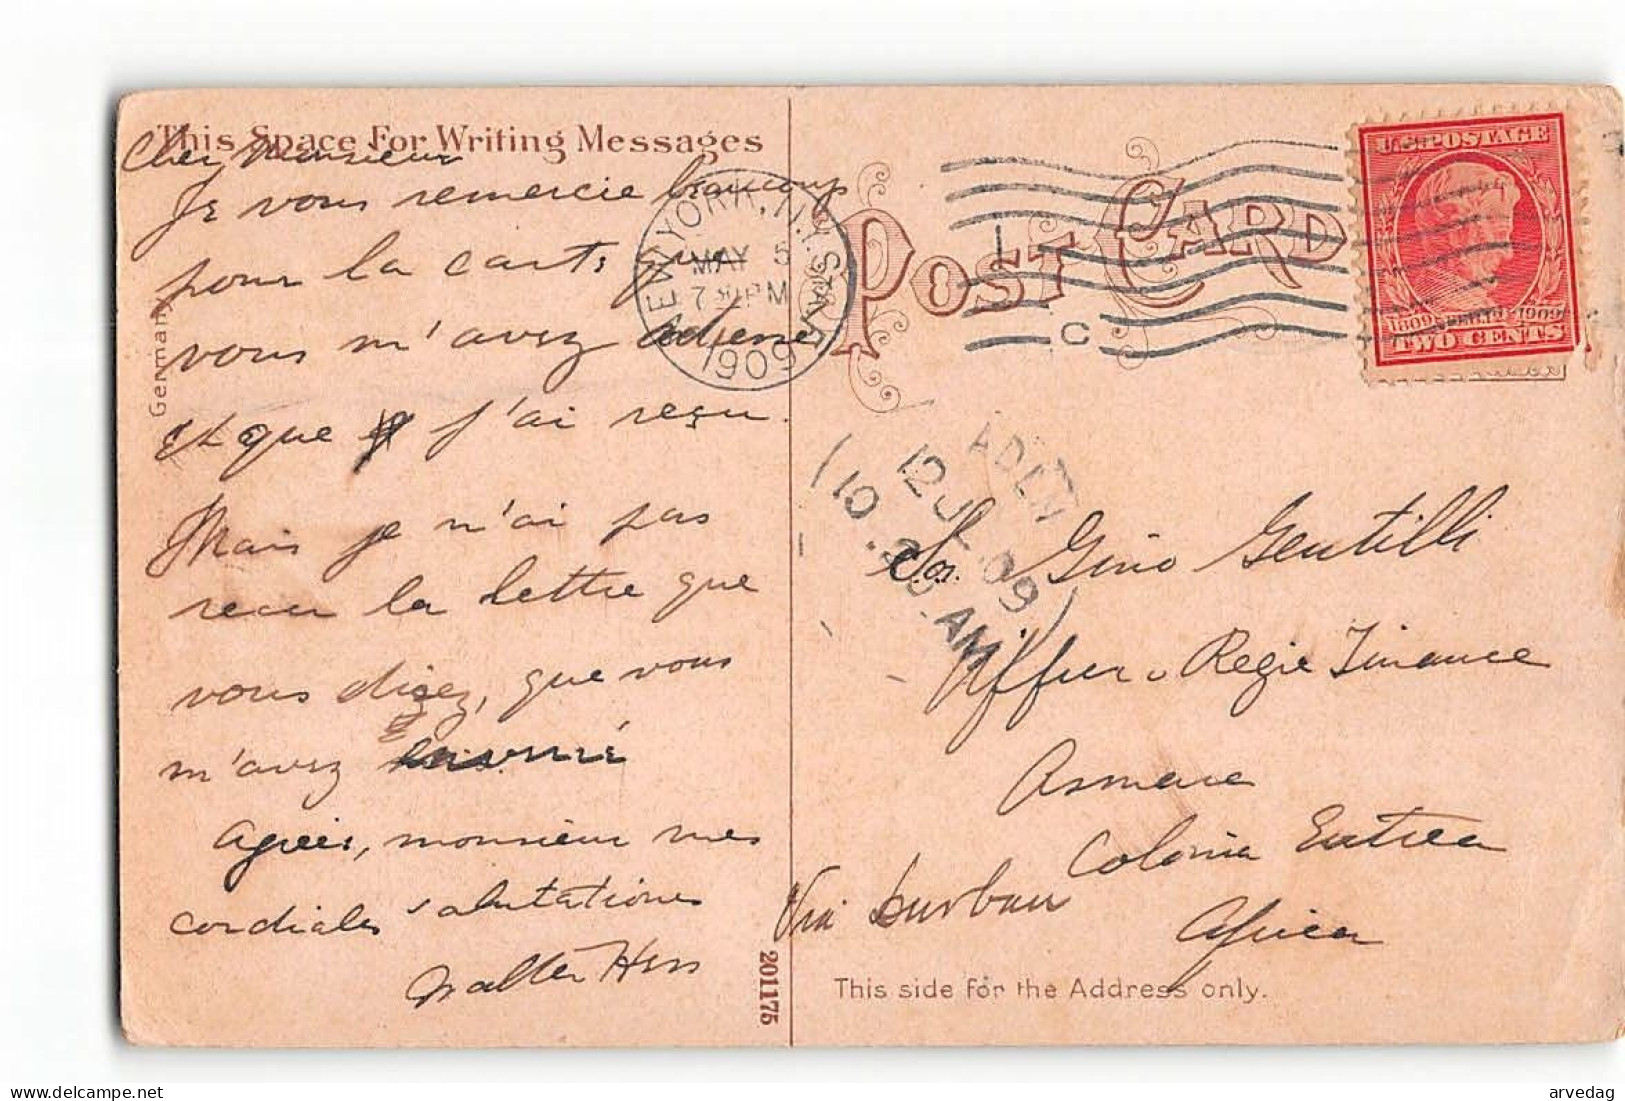 This Space For Writing Messages
Cher Monsieur
Je vous remercie beaucoup
pour la carte que
vous m'avez
et que j'ai reçu.
Mais je n'ai pas
recu la lettre que
vous dizez, que vous
m'avez
agrées, monsieur mes
cordiales salutations
Walter Hess
Germany
201175
NEW YORK, N.Y. STA.
MAY 5
7 30 PM
1909
C
POST CARD
U.S. POSTAGE
1809 FEB. 12 1909
TWO CENTS
ADEN
12 JUL 09
10 AM
Gino Gentilli
Regie Finance
Asmara
Colonia Eritrea
Africa
Via Durban
This side for the Address only.
arvedag